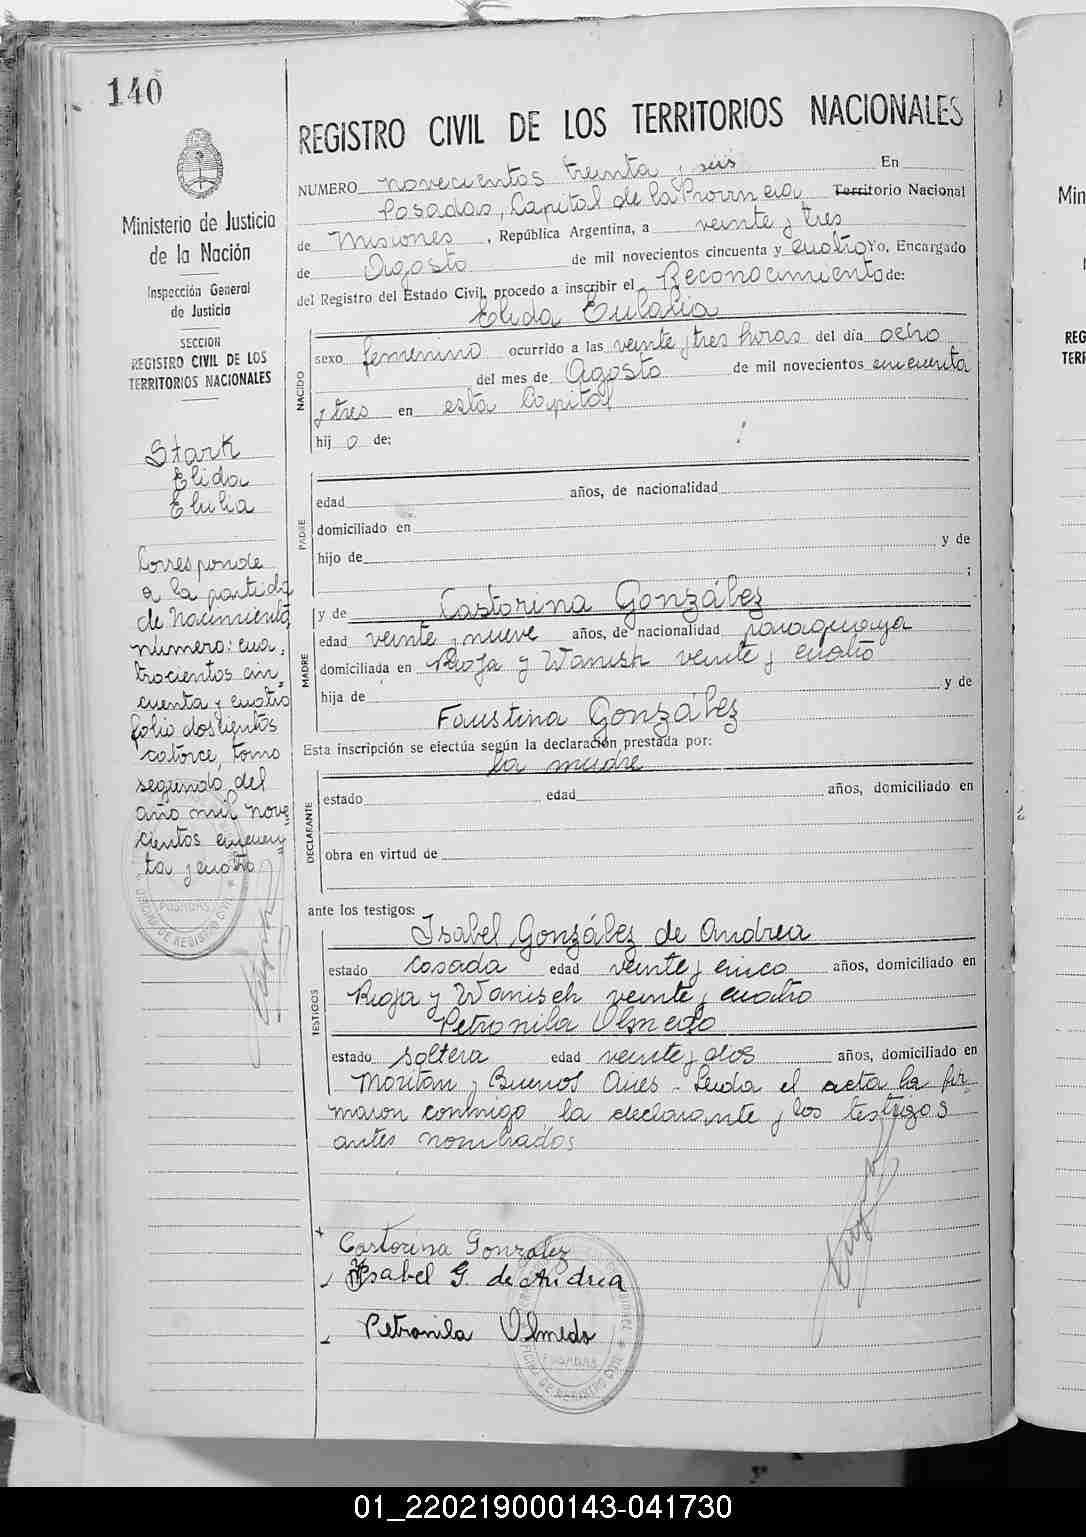 140
REGISTRO CIVIL DE LOS TERRITORIOS NACIONALES
Ministerio de Justicia
de la Nación
Inspección General
de Justicia
SECCION
REGISTRO CIVIL DE LOS
TERRITORIOS NACIONALES
Stark
Elida
Elulia
Corresponde
a la partida
de Nacimiento
número: cua-
trocientos cin-
cuenta y cuatro
folio doscientos
catorce, tomo
segundo del
año mil nove-
cientos cincuen-
ta y cuatro
NUMERO novecientos treinta y seis En
Posadas, Capital de la Provincia Territorio Nacional
de Misiones, República Argentina, a veinte y tres
de Agosto de mil novecientos cincuenta y cuatro Yo, Encargado
del Registro del Estado Civil, procedo a inscribir el Reconocimiento de:
Elida Eulalia
NACIDO
sexo femenino ocurrido a las veinte y tres horas del día ocho
del mes de Agosto de mil novecientos cincuenta
y tres en esta Capital
hij a de:
PADRE
edad años, de nacionalidad
domiciliado en
hijo de y de
;
MADRE
y de Castorina González
edad veinte y nueve años, de nacionalidad paraguaya
domiciliada en Rioja y Wanish veinte y cuatro
hija de y de
Faustina González
Esta inscripción se efectúa según la declaración prestada por:
la madre
DECLARANTE
estado edad años, domiciliado en
obra en virtud de
ante los testigos:
TESTIGOS
Isabel González de Andrea
estado casada edad veinte y cinco años, domiciliado en
Rioja y Wanisch veinte y cuatro
Petronila Olmedo
estado soltera edad veinte y dos años, domiciliado en
Moritán y Buenos Aires - Leida el acta la fir-
maron conmigo la declarante y los testigos
antes nombrados
Castorina Gonzalez
Isabel G. de Andrea
Petronila Olmedo
OFICINA DE REGISTRO CIVIL
POSADAS
Min
REG
TERR
01_220219000143-041730